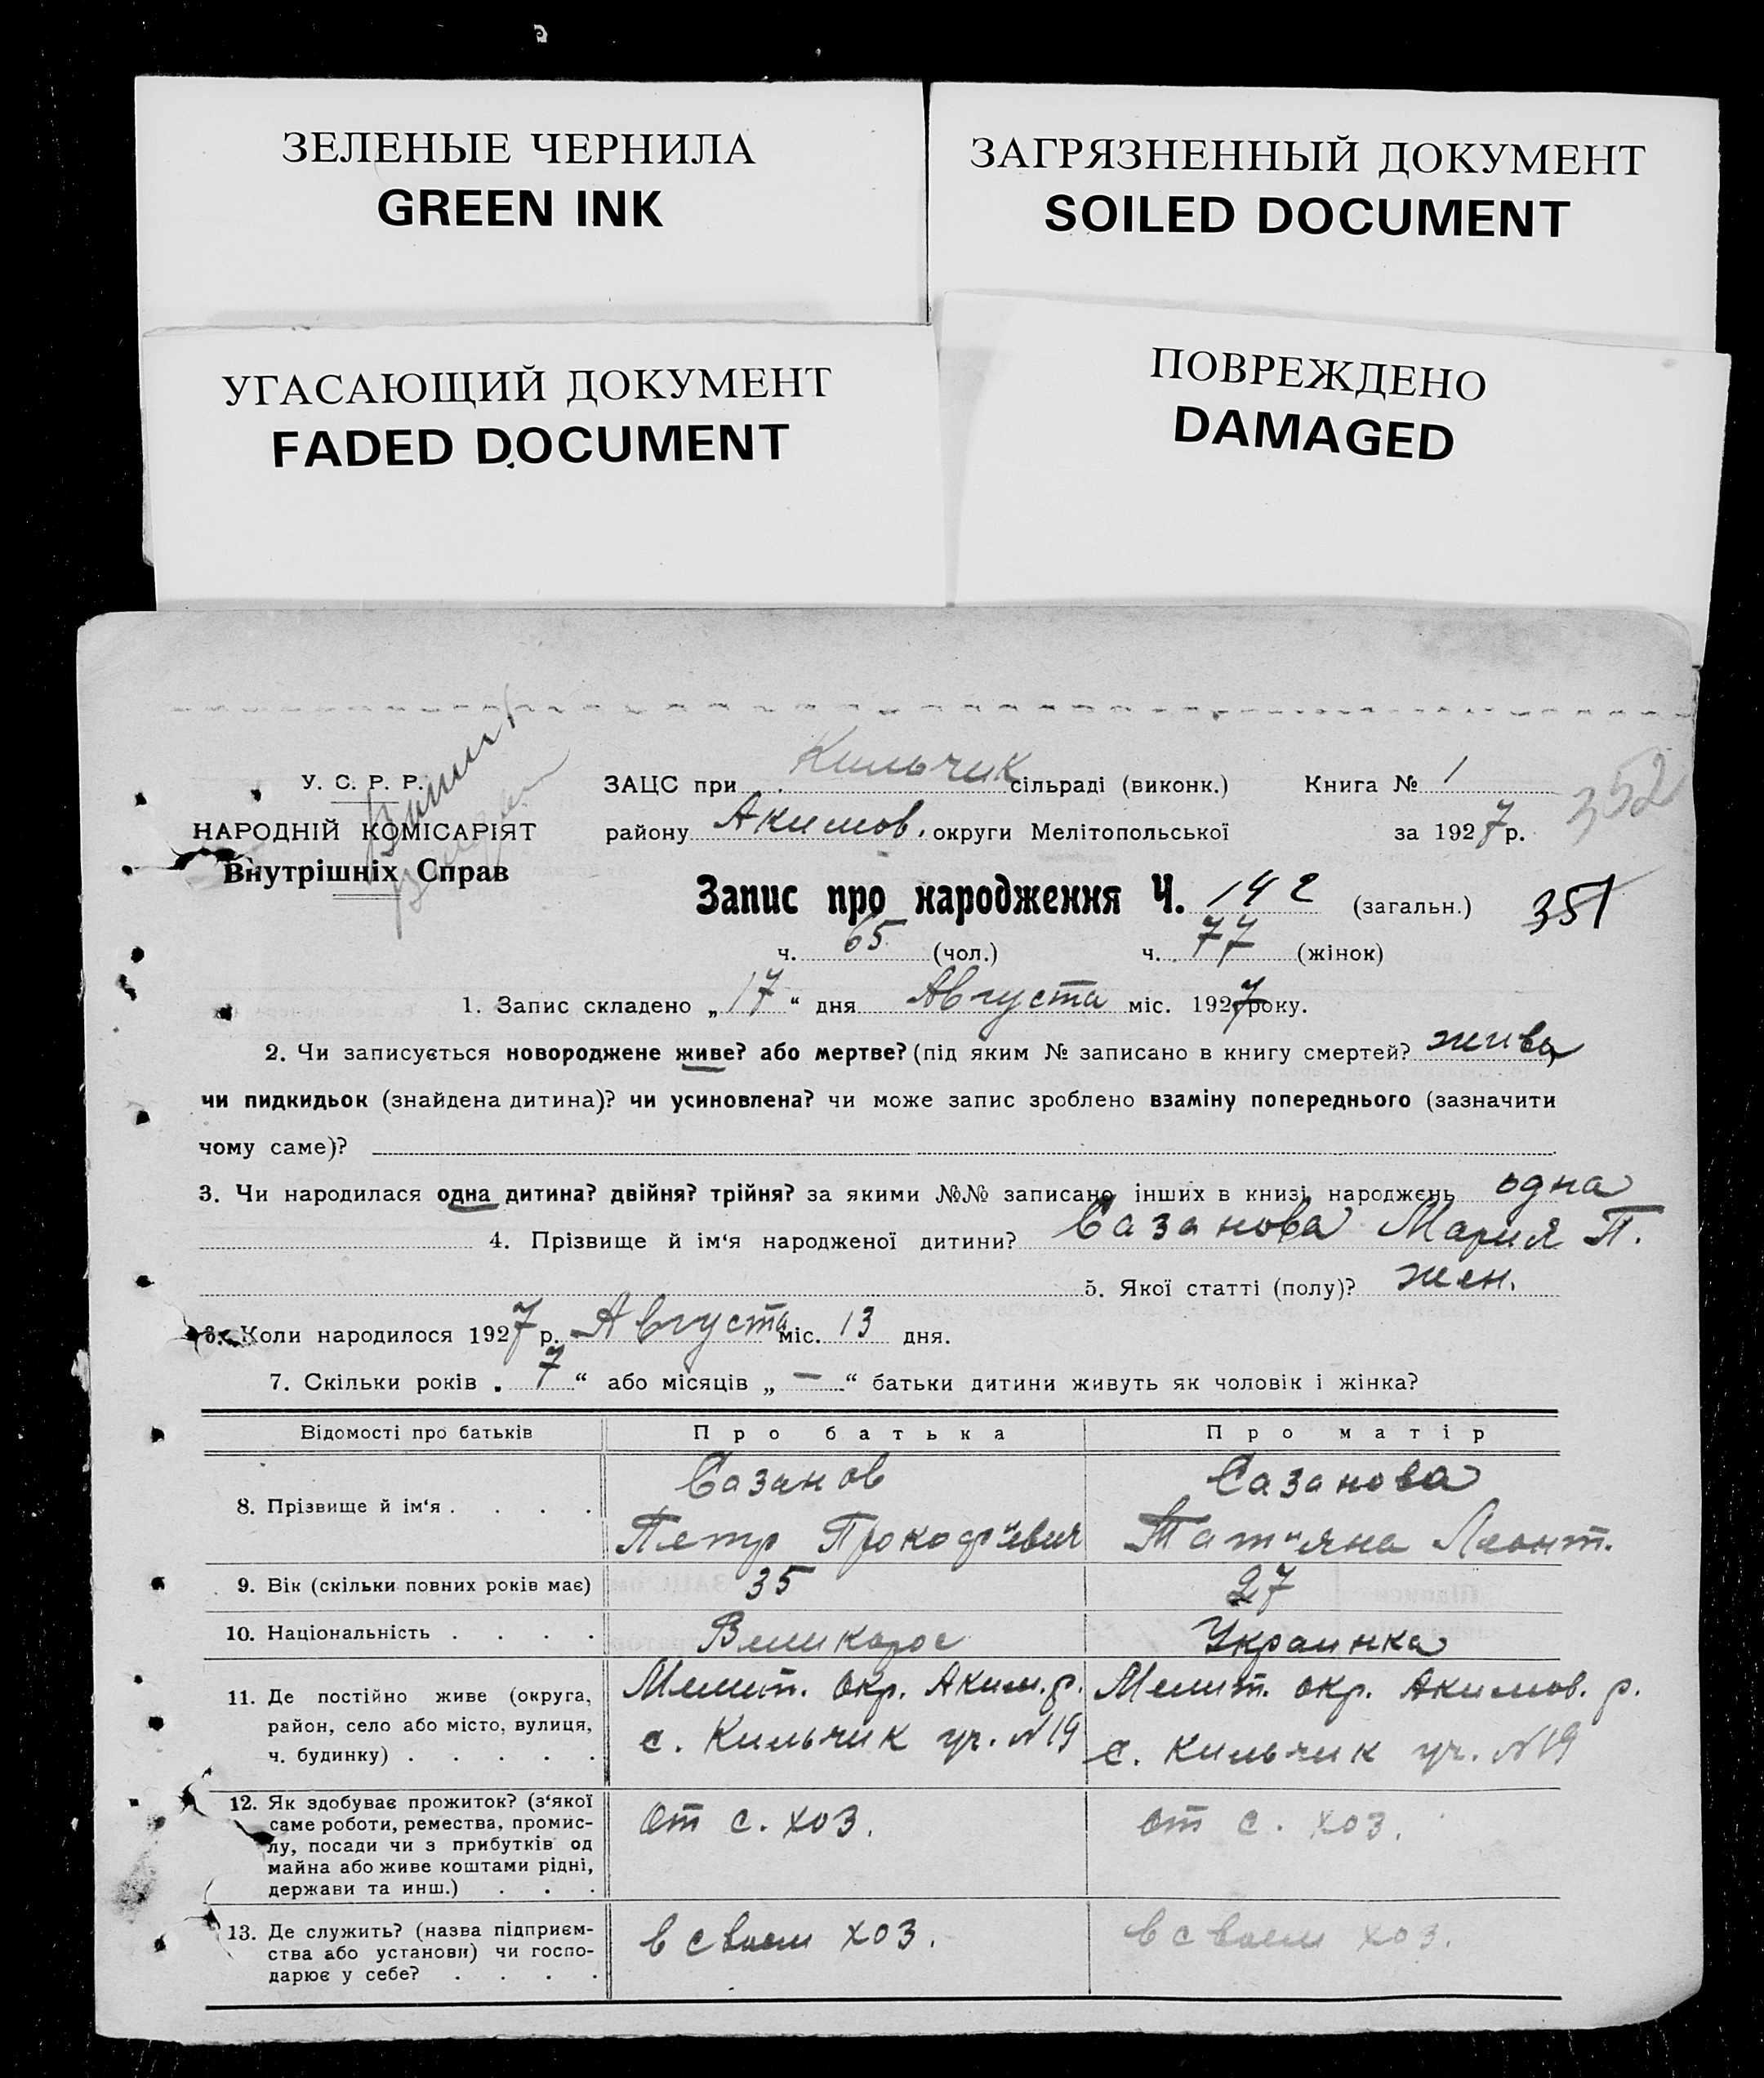 ЗЕЛЕНЫЕ ЧЕРНИЛА
GREEN INK
ЗАГРЯЗНЕННЫЙ ДОКУМЕНТ
SOILED DOCUMENT
УГАСАЮЩИЙ ДОКУМЕНТ
FADED DOCUMENT
ПОВРЕЖДЕНО
DAMAGED
У. С. Р. Р.
НАРОДНІЙ КОМІСАРІЯТ
Внутрішніх Справ
ЗАЦС при Кильчик сільраді (виконк.) Книга № 1
352
району Акимов. округи Мелітопольської за 1927 р.
Запис про народження Ч. 142 (загальн.) 351
ч. 65 (чол.) ч. 77 (жінок)
1. Запис складено „17“ дня Августа міс. 1927 року.
2. Чи записується новороджене живе? або мертве? (під яким № записано в книгу смертей? жива
чи пидкидьок (знайдена дитина)? чи усиновлена? чи може запис зроблено взаміну попереднього (зазначити
чому саме)?
3. Чи народилася одна дитина? двійня? трійня? за якими №№ записано інших в книзі народжень одна
4. Прізвище й ім‘я народженої дитини? Сазанова Мария П.
5. Якої статті (полу)? жен.
6. Коли народилося 1927 р. Августа міс. 13 дня.
7. Скільки років „7“ або місяців „—“ батьки дитини живуть як чоловік і жінка?
Відомості про батьків Про батька Про матір
8. Прізвище й ім‘я . . . . Сазанов Сазанова
Петр Прокофьевич Тат"яна Леонт.
9. Вік (скільки повних років має) 35 27
10. Національність . . . . Великорос Украинка
11. Де постійно живе (округа, район, село або місто, вулиця, ч. будинку) . . . . .
Мелит. окр. Аким. р. Мелит. окр. Акимов. р.
с. Кильчик уч. №19 с. Кильчик уч. №19
12. Як здобуває прожиток? (з‘якої
саме роботи, ремества, промис-
лу, посади чи з прибутків од
майна або живе коштами рідні,
держави та инш.) . . .
от с. хоз. от с. хоз.
13. Де служить? (назва підприєм-
ства або установи) чи госпо-
дарює у себе? . . . .
в своем хоз. в своем хоз.